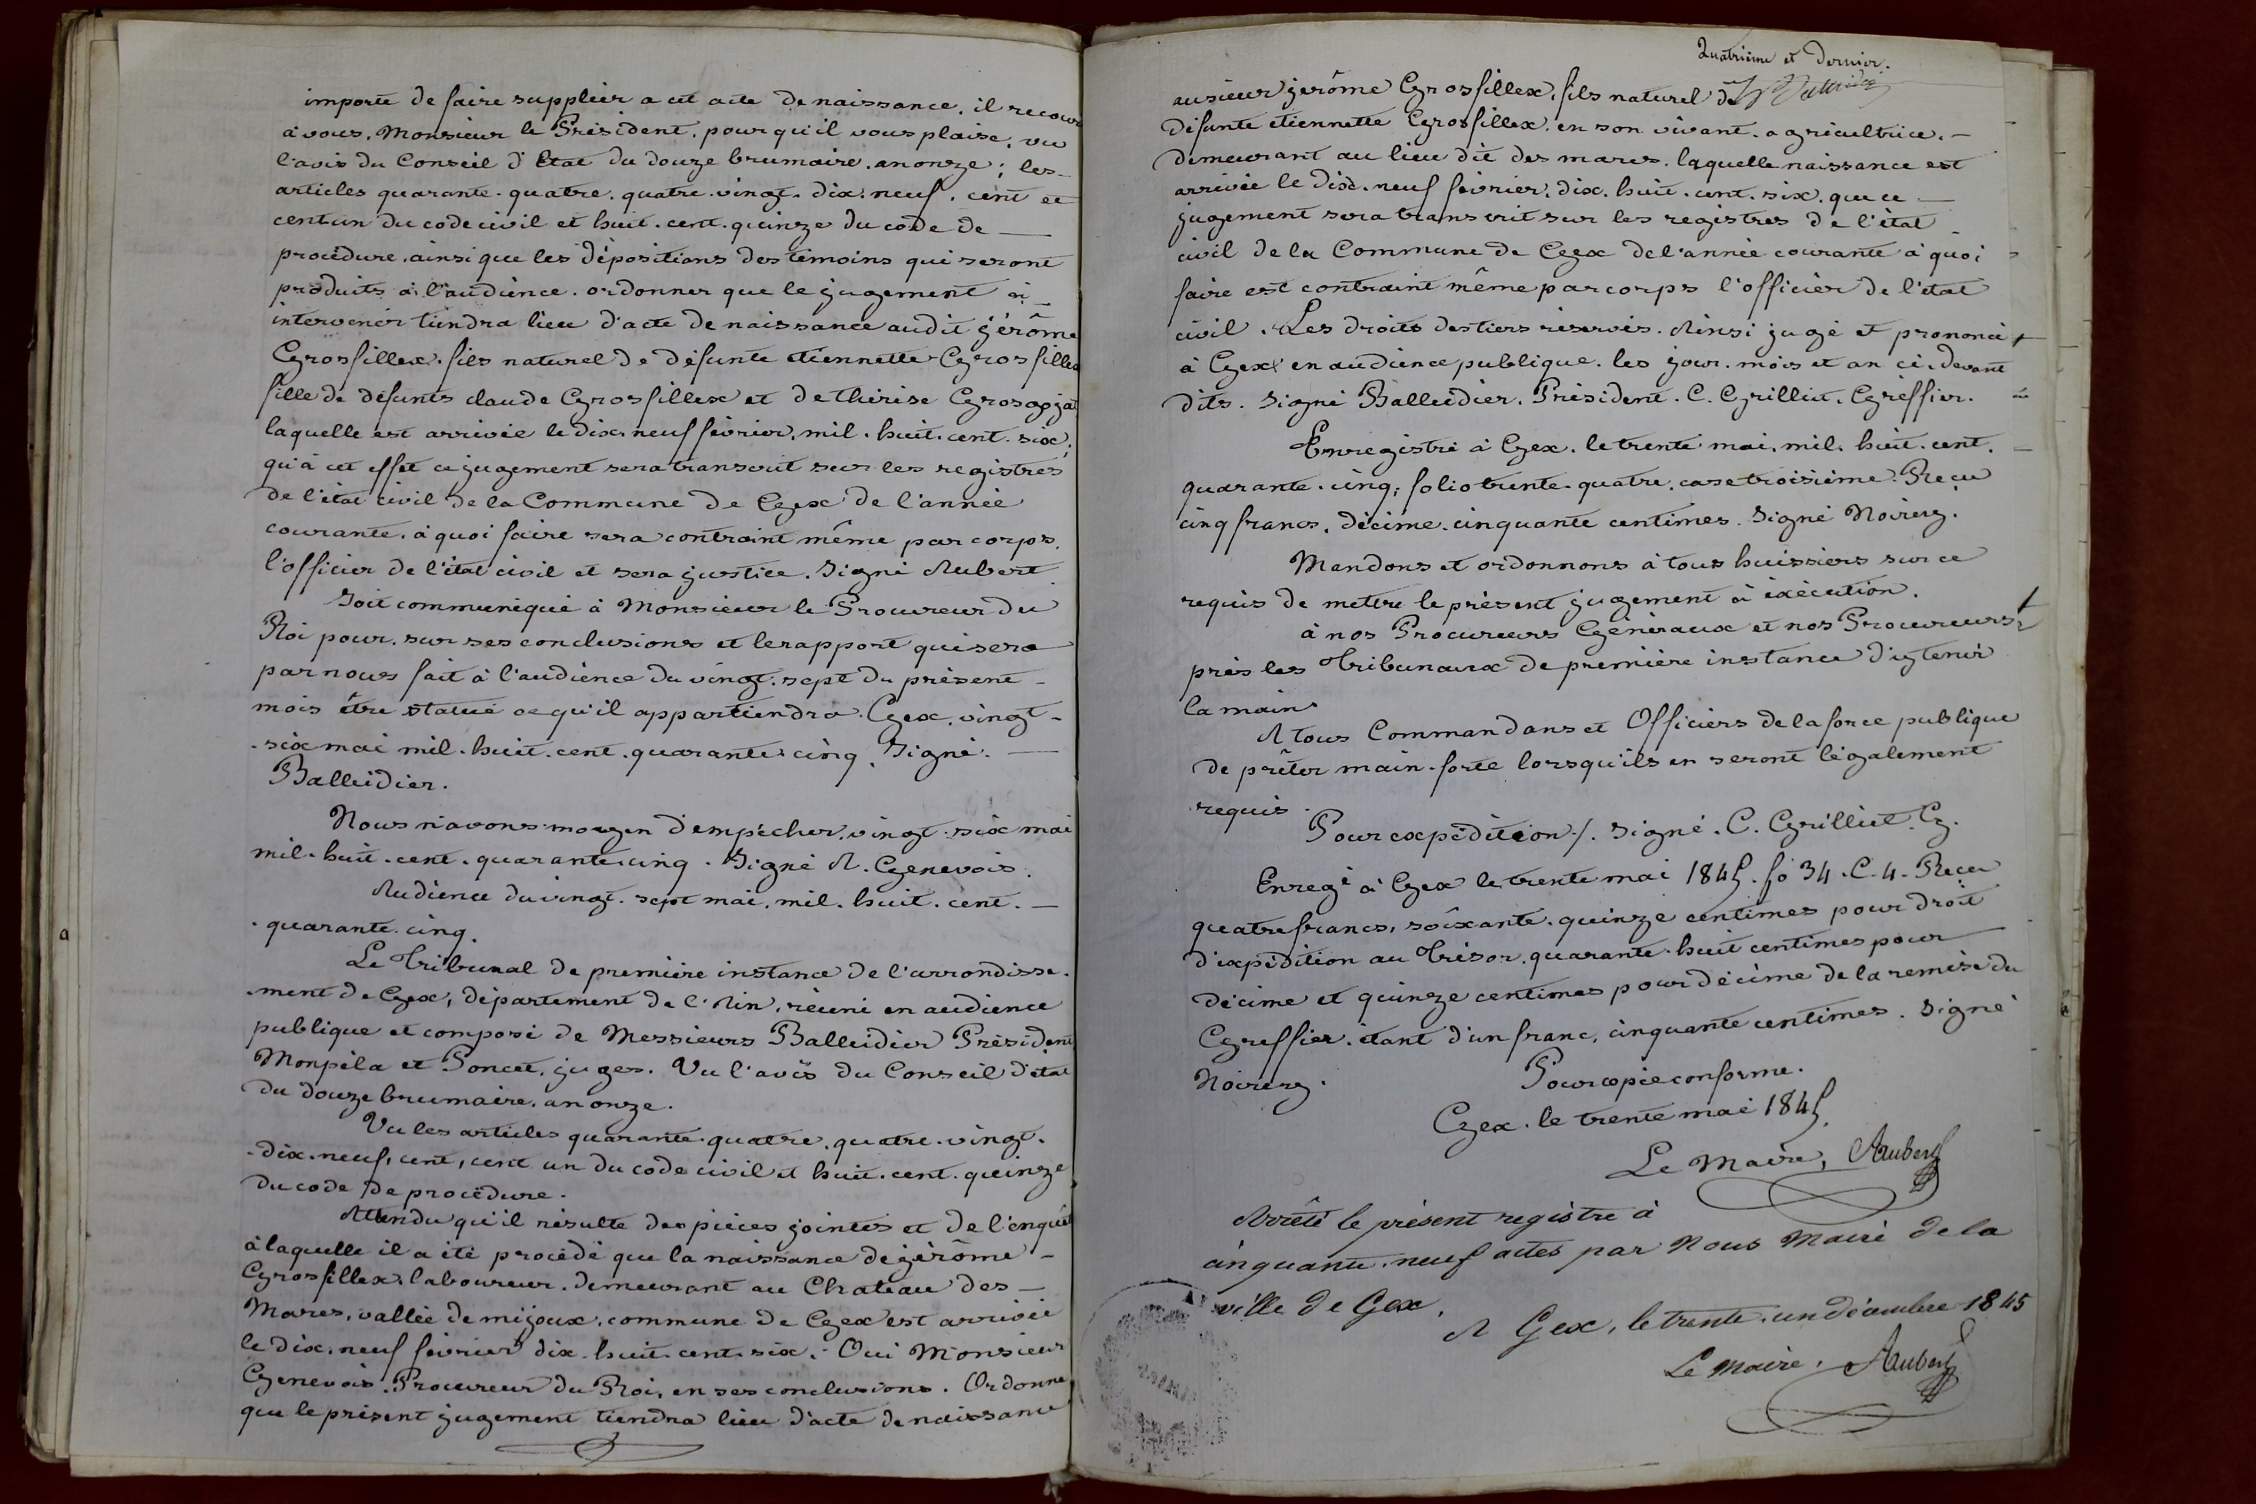 importe de faire suppléer a cet acte de naissance, il recourt
à vous, Monsieur le Président, pour qu'il vous plaise, vu
l'avis du Conseil d'Etat du douze brumaire, an onze; les
articles quarante-quatre, quatre-vingt-dix-neuf, cent et
cent un du code civil et huit-cent-quinze du code de
procédure, ainsi que les dépositions des témoins qui seront
produits à l'audience, ordonner que le jugement à
intervenir tiendra lieu d'acte de naissance audit jérôme
Grosfillex, fils naturel de défunte étiennette Grosfillex
fille de défunts claude Grosfillex et de thérèse Grosgojat
laquelle est arrivée le dix-neuf février, mil-huit-cent-six,
qu'à cet effet ce jugement sera transcrit sur les registres
de l'état civil de la Commune de Gex de l'année
courante, à quoi faire sera contraint même par corps,
l'officier de l'état civil et sera justice. Signé Aubert
Soit communiqué à Monsieur le Procureur du
Roi pour, sur ses conclusions et le rapport qui sera
par nous fait à l'audience du vingt-sept du présent
mois être statué ce qu'il appartiendra. Gex, vingt-
-six mai mil-huit-cent-quarante-cinq. Signé:
Balleidier.
Nous n'avons moyen d'empêcher, vingt-six mai
mil-huit-cent-quarante-cinq. Signé A. Genevois.
Audience du vingt-sept mai, mil-huit-cent-
-quarante-cinq.
Le Tribunal de première instance de l'arrondisse-
-ment de Gex, département de l'Ain, réuni en audience
publique et composé de Messieurs Balleidier Président
Monpéla et Poncet, juges. Vu l'avis du Conseil d'état
du douze brumaire, an onze.
Vu les articles quarante-quatre, quatre-vingt-
-dix-neuf, cent, cent un du code civil et huit-cent-quinze
du code de procédure.
Attendu qu'il résulte des pièces jointes et de l'enquête
à laquelle il a été procédé que la naissance de jérôme
Grosfillex, laboureur, demeurant au Chateau des
Mares, vallée de mijoux, commune de Gex est arrivée
le dix-neuf février dix-huit-cent-six. Oui Monsieur
Genevois, Procureur du Roi, en ses conclusions. Ordonne
que le présent jugement tiendra lieu d'acte de naissance
Quatrième et dernier.
au sieur jerôme Grosfillex, fils naturel de
défunte étiennette Grosfillex, en son vivant, agricultrice,
demeurant au lieu dit des mares, laquelle naissance est
arrivée le dix-neuf février, dix-huit-cent-six, que ce
jugement sera transcrit sur les registres de l'état
civil de la Commune de Gex de l'année courante à quoi
faire est contraint même par corps l'officier de l'état
civil. Les droits des tiers réservés. Ainsi jugé et prononcé
à Gex, en audience publique, les jour, mois et an ci-devant
dits. Signé Balleidier, Président. C. Grilliet, Greffier.
Enregistré à Gex, le trente mai, mil-huit-cent-
quarante-cinq, folio trente-quatre, case troisième. Reçu
cinq francs, décime, cinquante centimes. Signé Noirery.
Mandons et ordonnons à tous huissiers sur ce
requis de mettre le présent jugement à éxécution.
à nos Procureurs Généraux et nos Procureurs
près les Tribunaux de première instance d'y tenir
la main.
A tous Commandans et Officiers de la force publique
de prêter main-forte lorsqu'ils en seront légalement
requis.
Pour expédition /. Signé. C. Grilliet. G.
Enregé à Gex le trente mai 1845. fo 34. C. 4. Reçu
quatre francs, soixante-quinze centimes pour droit
d'expédition au Trésor, quarante-huit centimes pour
décime et quinze centimes pour décime de la remise du
Greffier, étant d'un franc, cinquante centimes. Signé
Noirery.
Pour copie conforme.
Gex, le trente mai 1845.
Le Maire, Aubert
Arrêté le présent registre à
cinquante-neuf actes par Nous Maire de la
ville de Gex.
A Gex, le trente-un décembre 1845
Le Maire, Aubert